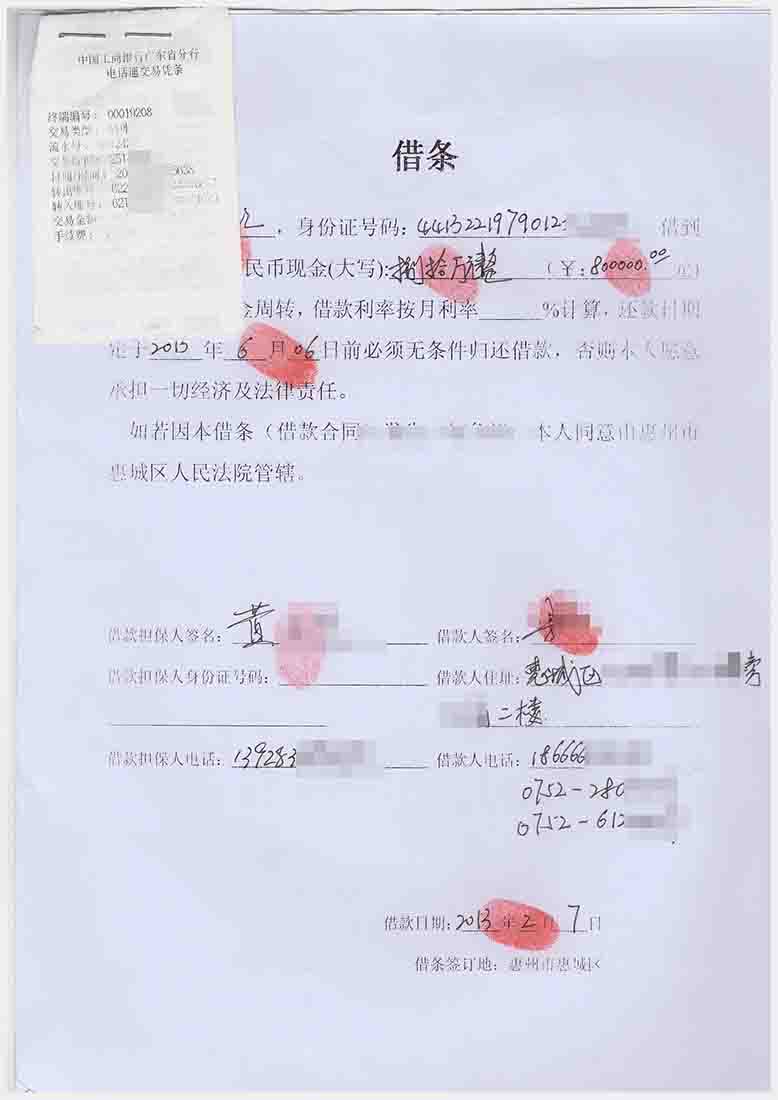 中国工商银行广东省分行
电话通交易凭条
终端编号: 00019208
交易类型:
流水号:
转出账号: 622
转入账号: 621
交易金额
手续费:
借条
,身份证号码:44132219790123 借到
民币现金(大写):捌拾万元整 (¥:800000.00 元)
金周转,借款利率按月利率 %计算,还款日期
定于2013年6月06日前必须无条件归还借款,否则本人愿意
承担一切经济及法律责任。
如若因本借条(借款合同 本人同意由惠州市
惠城区人民法院管辖。
借款担保人签名:黄 借款人签名:
借款担保人身份证号码: 借款人住址:惠城区
二楼
借款担保人电话:139283 借款人电话:186666
0752-280
0752-612
借款日期:2013年2月7日
借条签订地:惠州市惠城区